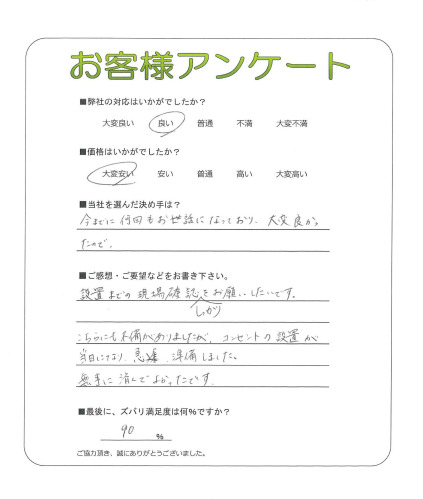 お客様アンケート
■弊社の対応はいかがでしたか？
大変良い 良い 普通 不満 大変不満
■価格はいかがでしたか？
大変安い 安い 普通 高い 大変高い
■当社を選んだ決め手は？
今までに何回もお世話になっており、大変良かっ
たので。
■ご感想・ご要望などをお書き下さい。
設置までの現場確認をお願いしたいです。
しっかり
こちらにも不備がありましたが、コンセントの設置が
当日になり、急遽、準備しました。
無事に済んでよかったです。
■最後に、ズバリ満足度は何％ですか？
90 ％
ご協力頂き、誠にありがとうございました。